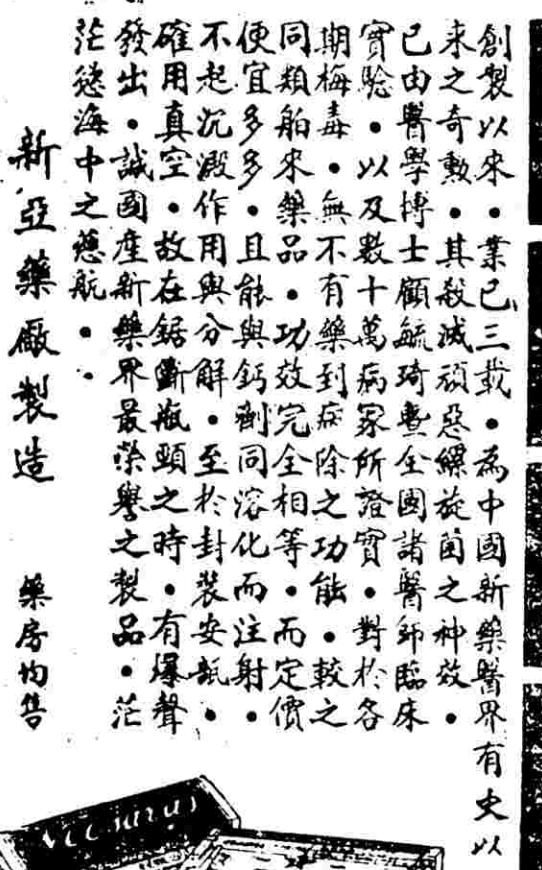 創製以來・業已三載・為中國新藥醫界有史以
來之奇勳・其殺滅頑惡螺旋菌之神效・
已由醫學博士顧毓琦暨全國諸醫師臨床
實驗・以及數十萬病家所證實・對於各
期梅毒・無不有藥到病除之功能・較之
同類舶來藥品・功效完全相等・而定價
便宜多多・且能與鈣劑同溶化而注射・
不起沉澱作用與分解・至於封裝安瓿・
確用真空・故在鋸斷瓶頸之時・有爆聲
發出・誠國産新藥界最榮譽之製品・茫
茫慾海中之慈航・・
新亞藥廠製造 藥房均售